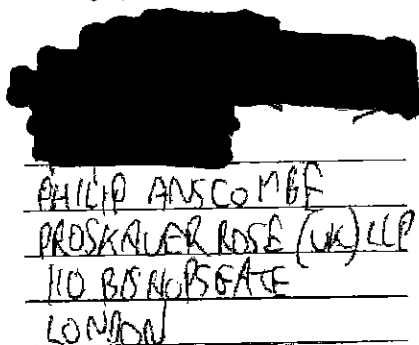 PHILIP ANSCOMBE
PROSKAUER ROSE (UK) LLP
110 BISHOPSGATE
LONDON